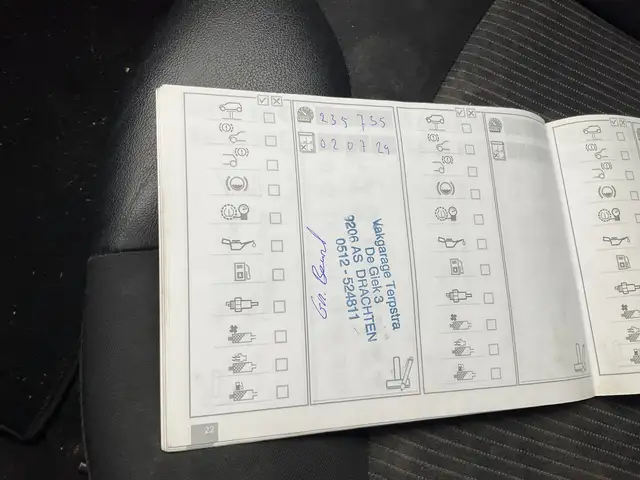 235 735
02 07 24
Vakgarage Terpstra
De Giek 3
9206 AS DRACHTEN
0512 - 524811
22